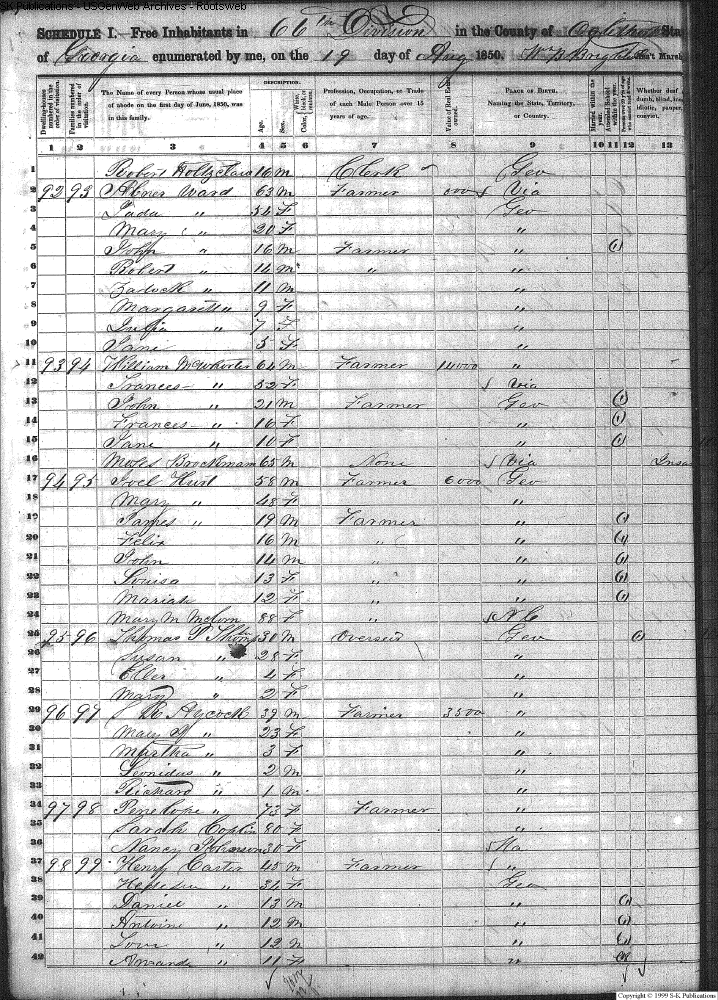 SK Publications - USGenWeb Archives - Rootsweb
SCHEDULE I.—Free Inhabitants in 66th Division in the County of Oglethorpe State
of Georgia enumerated by me, on the 19 day of Aug 1850. Ass't Marshal
DESCRIPTION.
Dwelling-houses numbered in the order of visitation. Families numbered in the order of visitation. The Name of every Person whose usual place of abode on the first day of June, 1850, was in this family. Age. Sex. White, black, or mulatto. Profession, Occupation, or Trade of each Male Person over 15 years of age. Value of Real Estate PLACE OF BIRTH. Naming the State, Territory, or Country. Married within the year. Attended School within the year. Whether deaf & dumb, blind, insane, idiotic, pauper, convict.
1 2 3 4 5 6 7 8 9 10 11 12 13
1 Robert Holtzclaw 16 m Clerk Geo
2 92 93 Abner Ward 63 m Farmer Via
3 54 F Geo
4 Mary " 20 F "
5 John " 16 m Farmer " (1)
6 Robert " 14 m " "
7 Zadock " 11 m "
8 Margarett " 9 F "
9 Julia " 7 F "
10 Jane " 5 F "
11 93 94 William McWhorter 64 m Farmer 14000 "
12 Frances " 52 F Via
13 John " 21 m Farmer Geo (1)
14 Frances " 16 F " (1)
15 Jane " 10 F " (1)
16 Moses Brockmam 65 m None Via Insa
17 94 95 Joel Hurt 58 m Farmer 6000 Geo
18 Mary " 48 F "
19 James " 19 m Farmer " (1)
20 Felix 16 m " " (1)
21 John 14 m " " (1)
22 Louisa 13 F " " (1)
23 Mariah 12 F " " (1)
24 Mary M 88 F " N C
25 95 96 Thomas P 30 m Overseer Geo (1)
26 Susan " 28 F "
27 Eller " 4 F "
28 Mary " 2 F "
29 96 97 R Aycock 39 m Farmer 3500 "
30 Mary " 23 F "
31 Martha " 3 F "
32 Leonidus " 2 m "
33 Richard " 1 m "
34 97 98 Penelope " 73 F Farmer "
35 Sarah Coplin 80 F "
36 Nancy Johnson 30 F
37 98 99 Henry Carter 45 m Farmer "
38 " 34 F Geo
39 Daniel " 13 m " (1)
40 Antoine " 12 m " (1)
41 " 12 " (1)
42 Amanda " 11 F " (1)
Copyright © 1999 S-K Publications